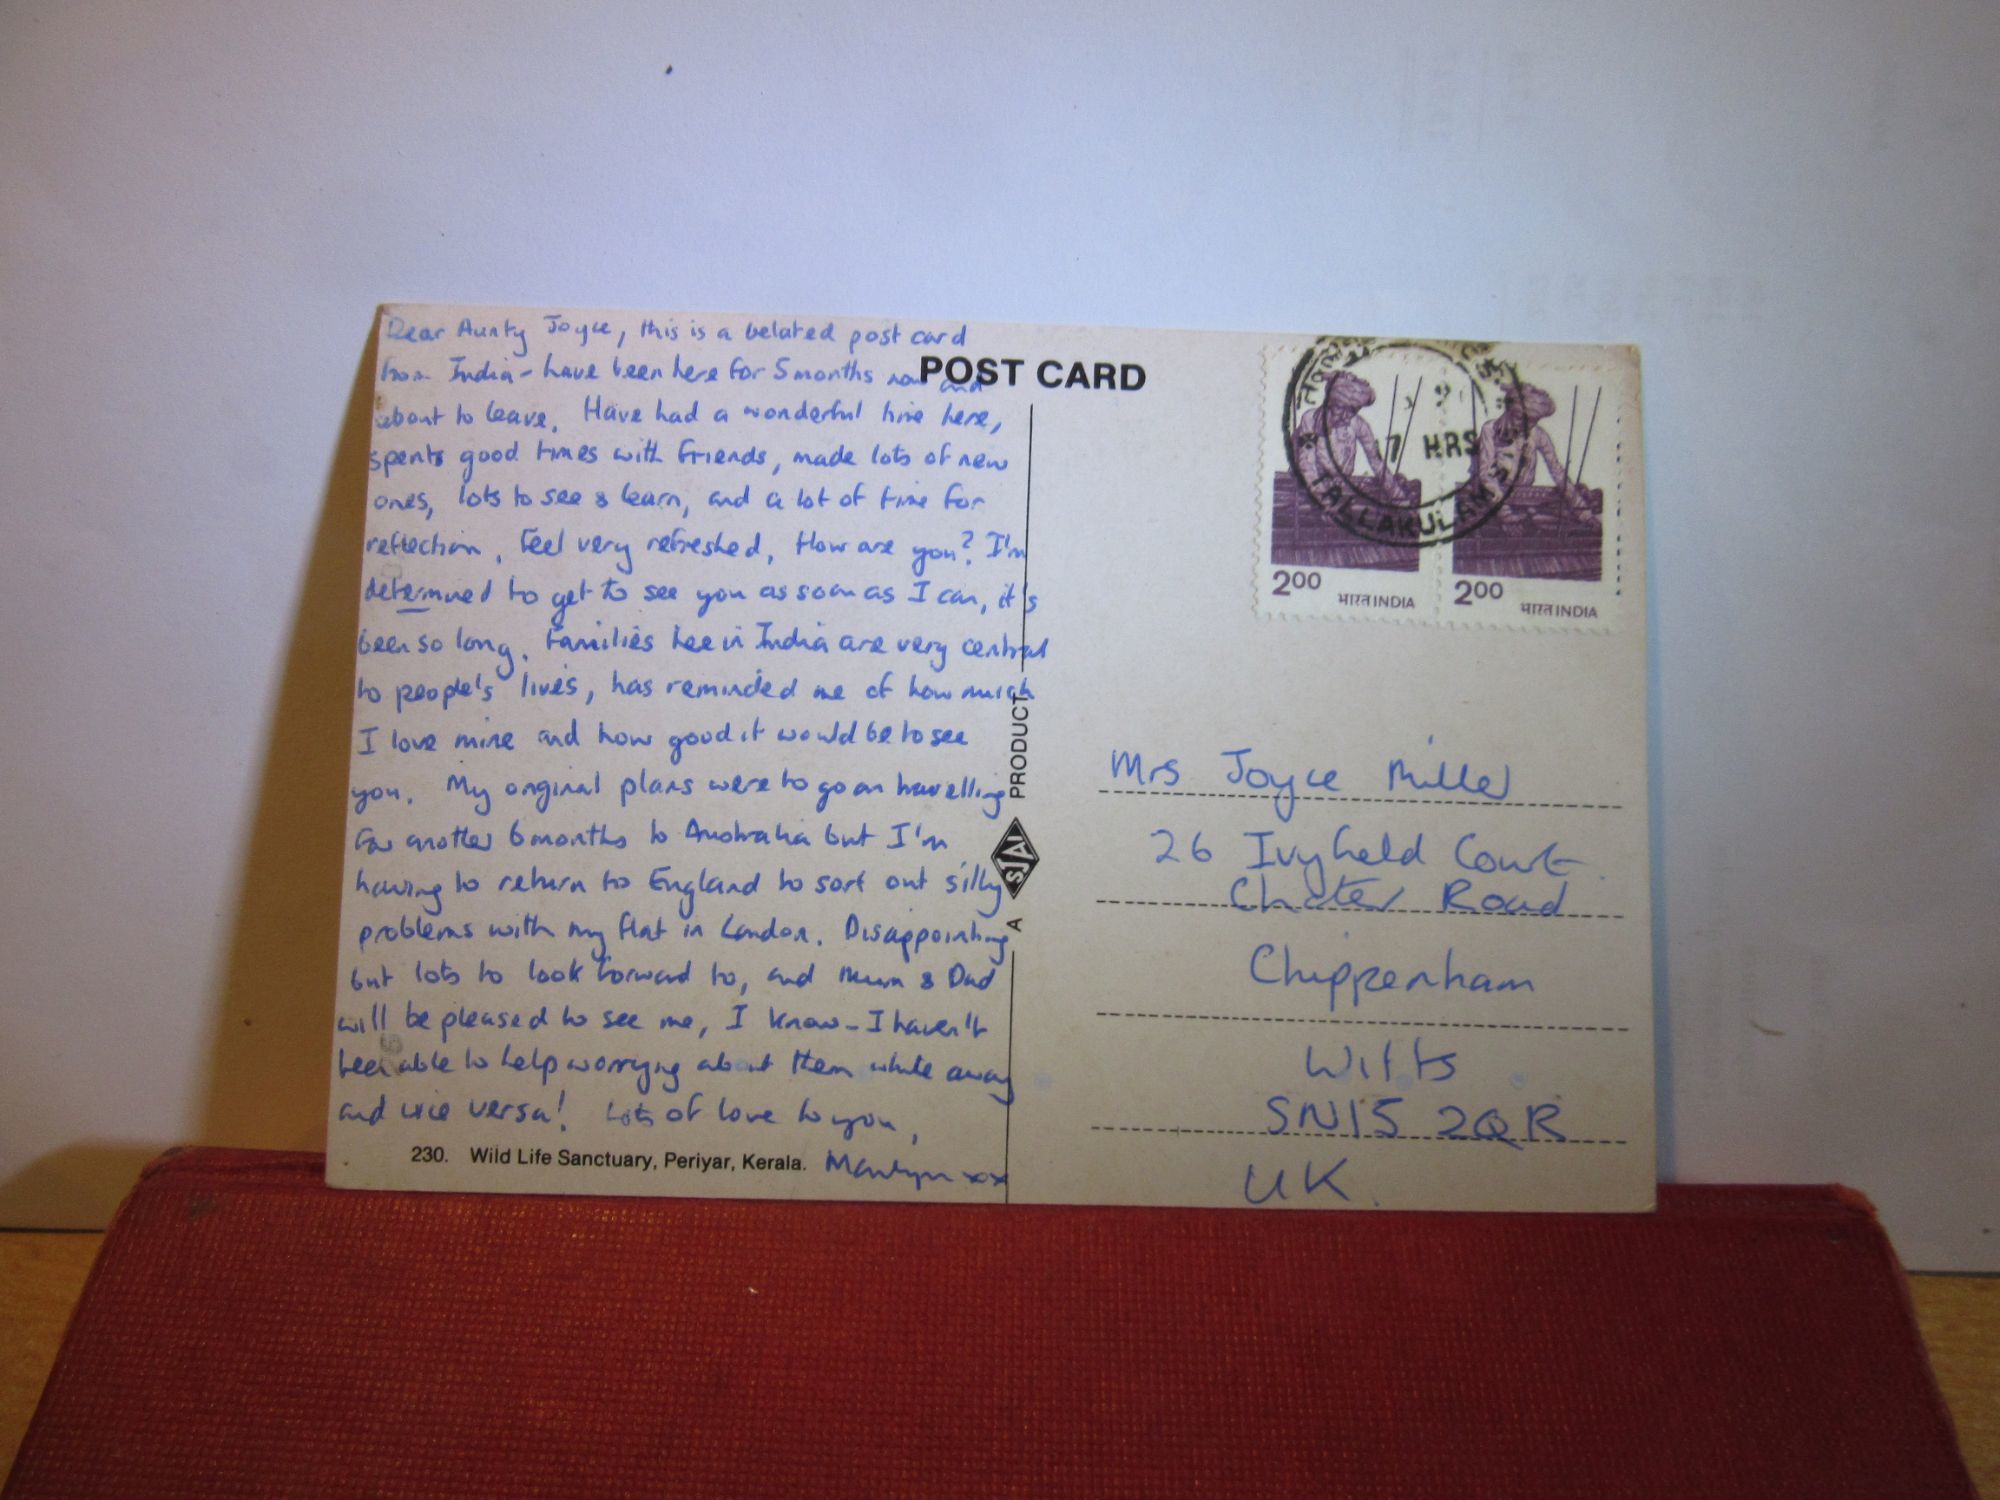 Dear Aunty Joyce, this is a belated post card
from India - have been here for 5 months now and
about to leave. Have had a wonderful time here,
spent good times with friends, made lots of new
ones, lots to see & learn, and a lot of time for
reflection. Feel very refreshed. How are you? I'm
determined to get to see you as soon as I can, it's
been so long. Families here in India are very central
to people's lives, has reminded me of how much
I love mine and how good it would be to see
you. My original plans were to go on travelling
for another 6 months to Australia but I'm
having to return to England to sort out silly
problems with my flat in London. Disappointing
but lots to look forward to, and Mum & Dad
will be pleased to see me, I know - I haven't
been able to help worrying about them while away
and vice versa! Lots of love to you,
Marilyn xx
230. Wild Life Sanctuary, Periyar, Kerala.
POST CARD
A SJAI PRODUCT
7 HRS
TALLAKULAM
200 भारत INDIA
200 भारत INDIA
Mrs Joyce Miller
26 Ivyfield Court
Chater Road
Chippenham
Wilts
SN15 2QR
UK.